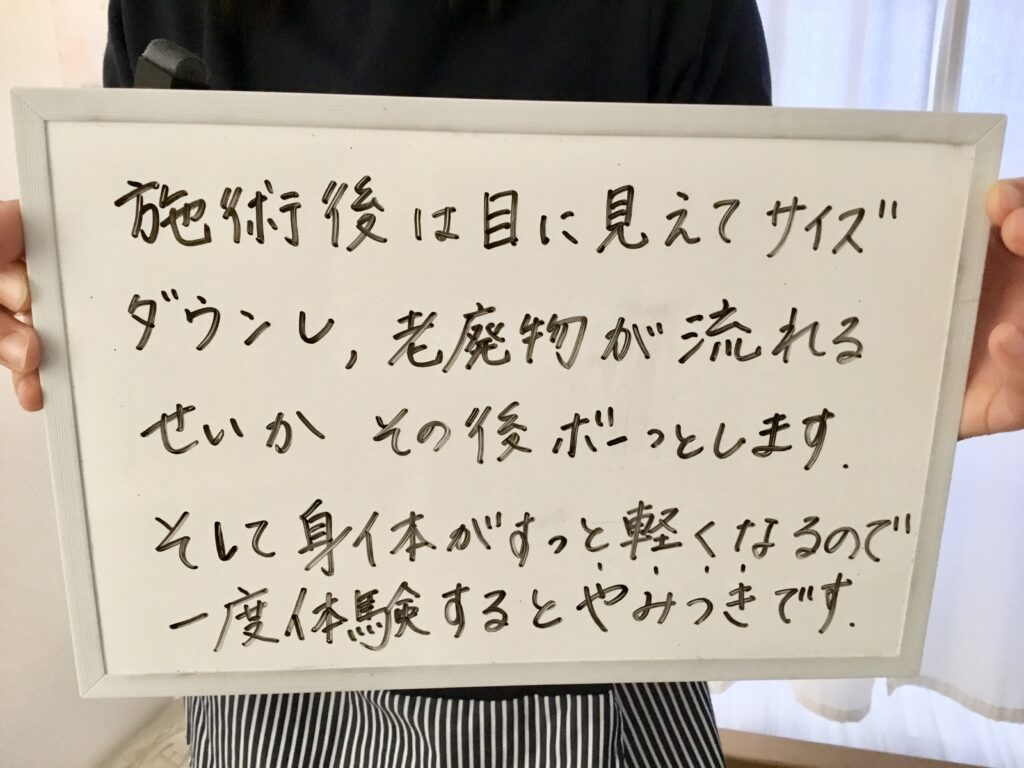 施術後は目に見えてサイズ
ダウンし,老廃物が流れる
せいか その後ボーっとします.
そして身体がすっと軽くなるので
一度体験するとやみつきです.